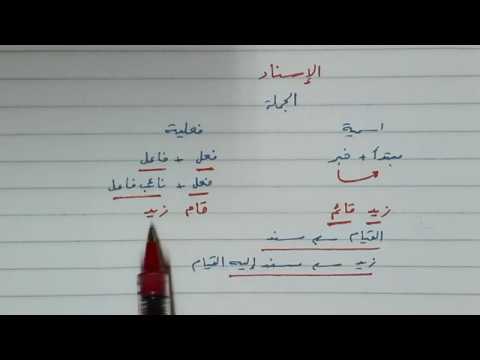 الإسناد
الجملة
اسمية فعلية
مبتدأ + خبر فعل + فاعل
فعل + نائب فاعل
زيد قائم قام زيد
القيام مسند
زيد مسند إليه القيام